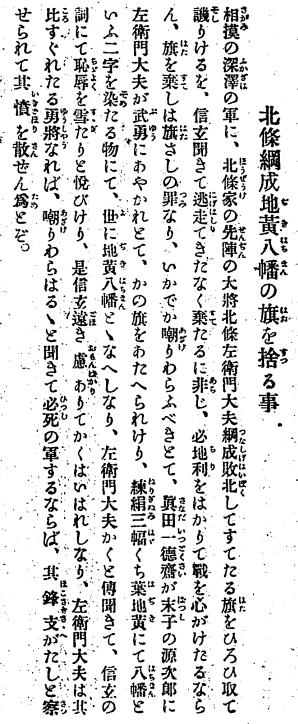 北條綱成地黃八幡の旗を捨る事
相摸の深澤の軍に、北條家の先陣の大將北條左衛門大夫綱成敗北してすてたる旗をひろひ取て
譏りけるを、信玄聞きて逃走てきたなく棄たるに非じ、必地利をはかりて戰を心がけたるなら
ん、旗を棄しは旗さしの罪なり、いかでか嘲りわらふべきとて、眞田一德齋が末子の源次郎に
左衛門大夫が武勇にあやかれとて、かの旗をあたへられけり、練絹三幅くち葉地黃にて八幡と
いふ二字を染たる物にて、世に地黃八幡とゝなへしなり、左衛門大夫かくと傳聞きて、信玄の
詞にて恥辱を雪たりと悅びけり、是信玄遠き慮ありてかくはいはれしなり、左衛門大夫は其
比すぐれたる勇將なれば、嘲りわらはるゝと聞きて必死の軍するならば、其鋒支がたしと察
せられて其憤を散せん爲とぞ。